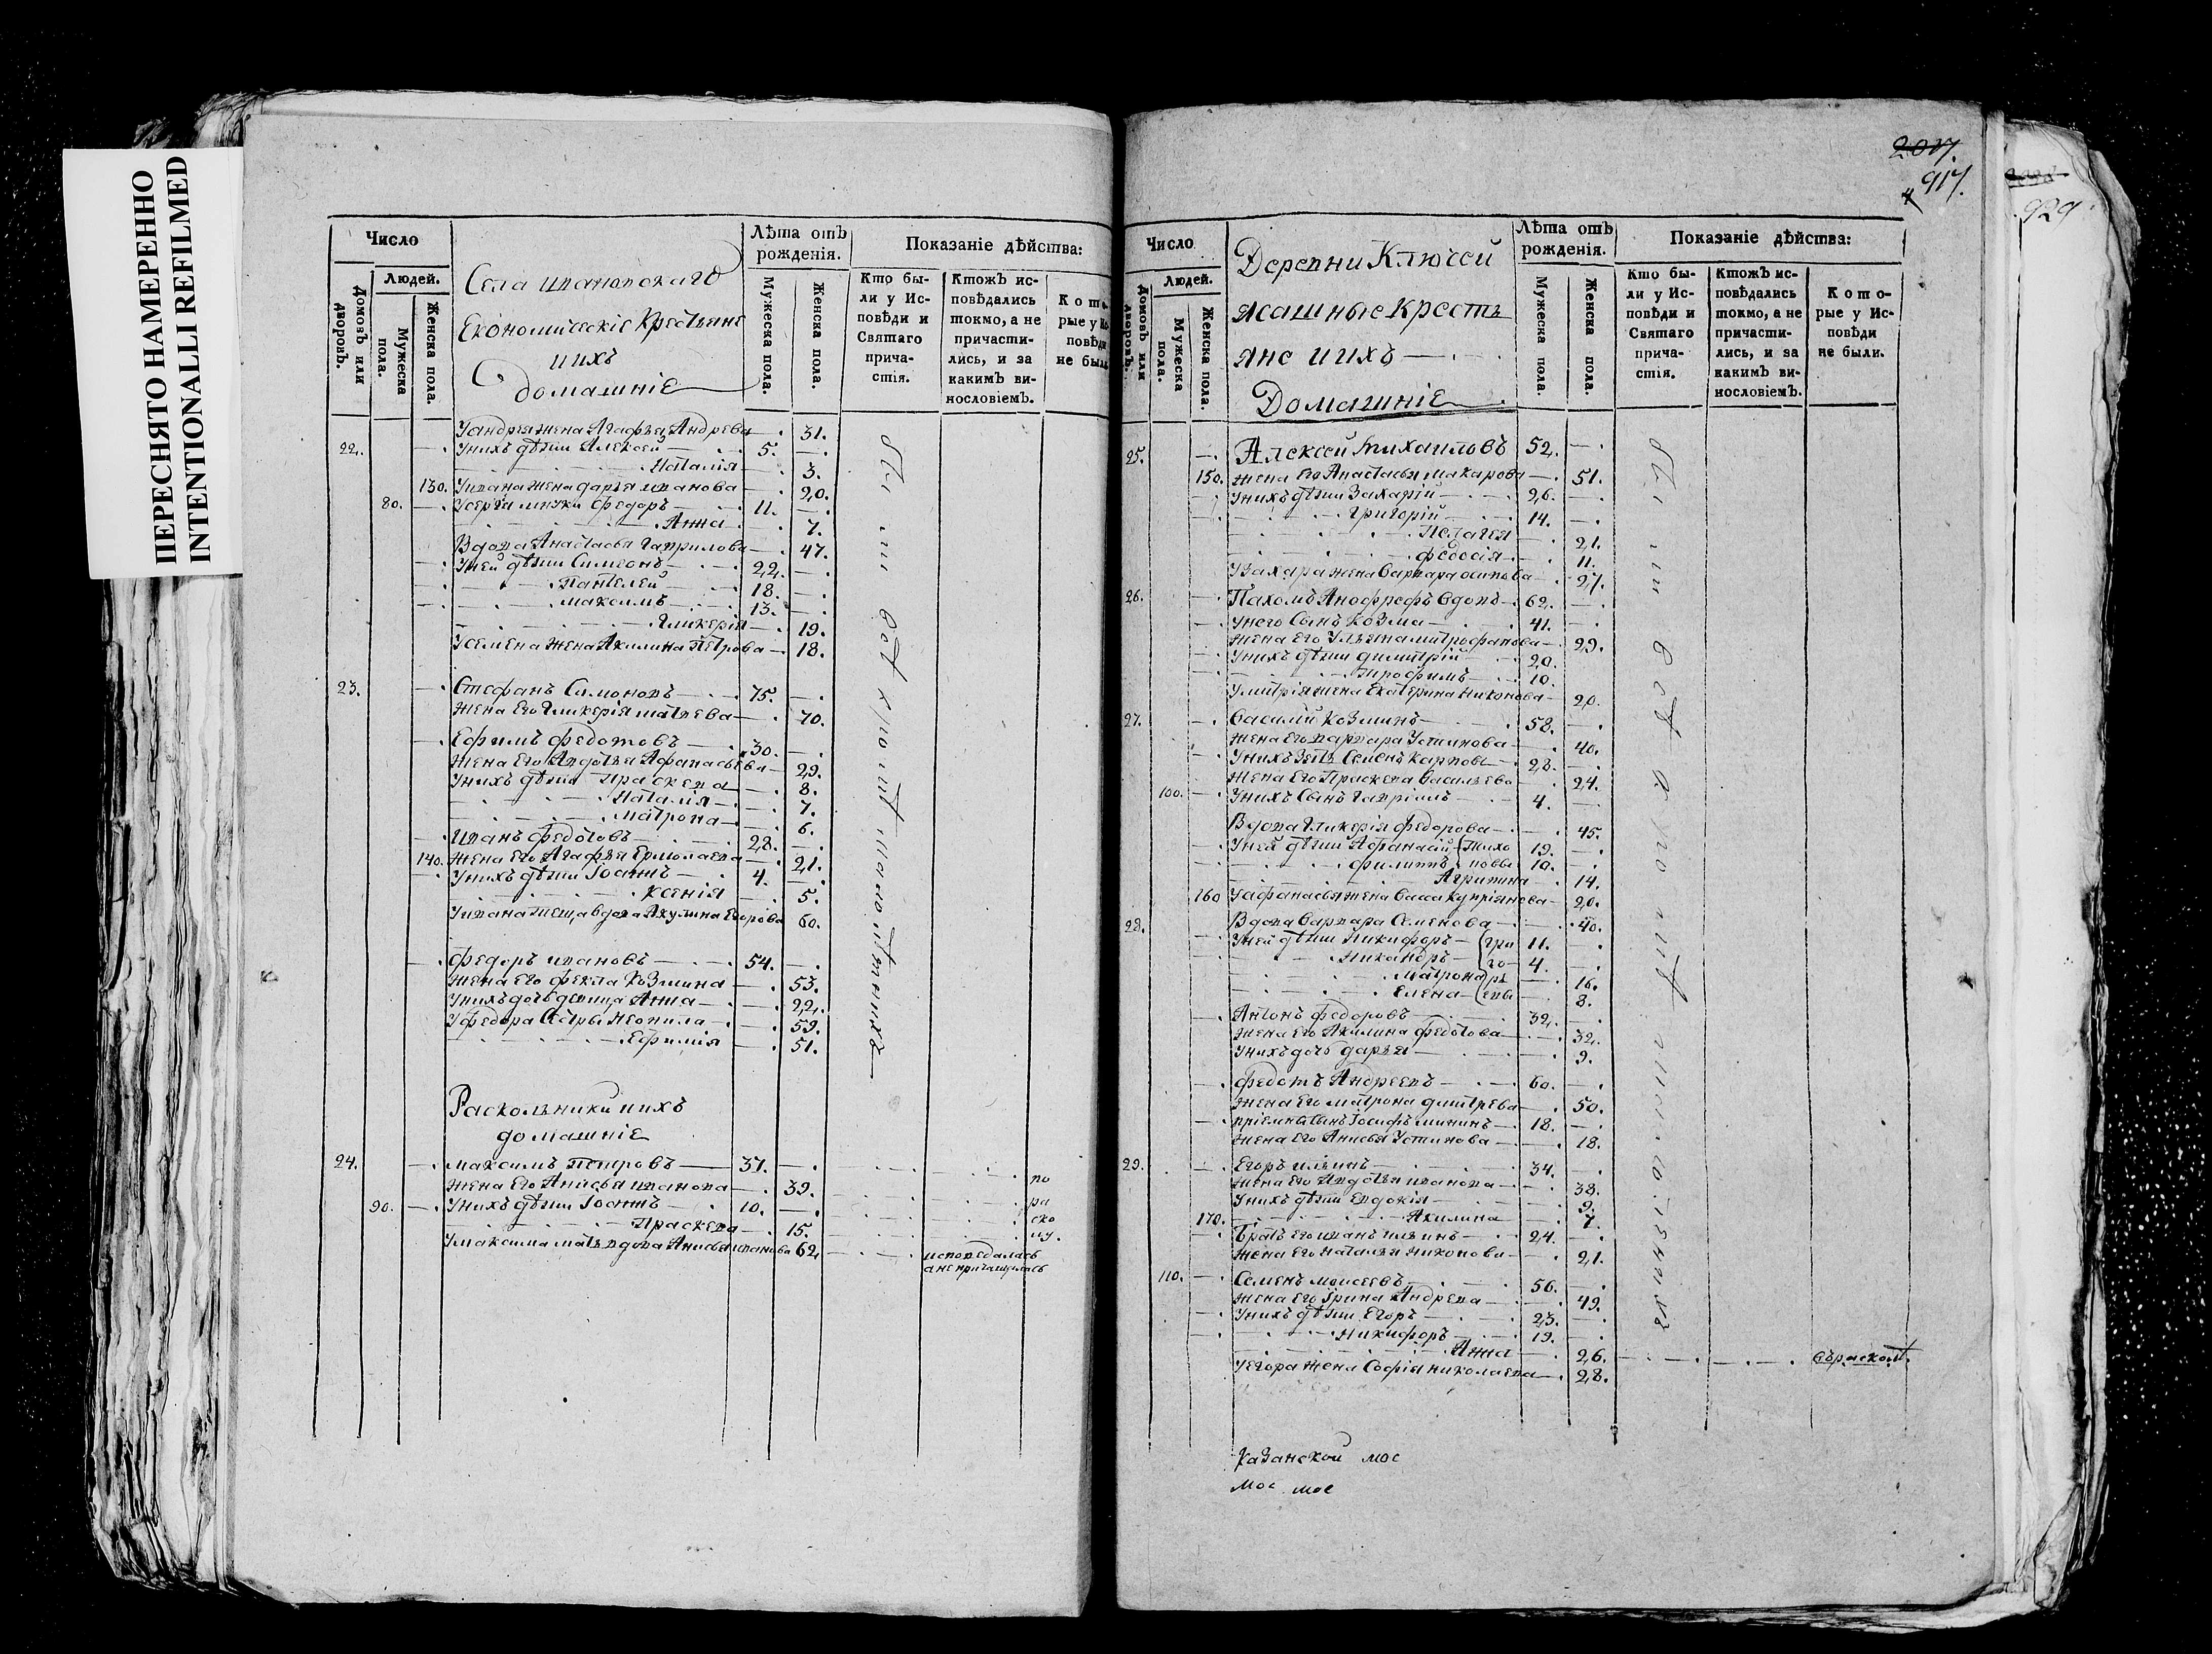 ПЕРЕСНЯТО НАМЕРЕННО
INTENTIONALLI REFILMED
Число
Людей.
Домовъ или дворовъ.
Мужеска пола.
Женска пола.
Села ивановскаго
Економическіе Крестьяне
ихъ
домашніе
Лѣта отъ рожденія.
Мужеска пола.
Женска пола.
Показаніе дѣйства:
Кто были у Исповѣди и Святаго причастія.
Ктожъ исповѣдались токмо, а не причастились, и за какимъ винословіемъ.
Кото
рые у Ис
повѣди
не были
Уандрея жена Агафья Андрева 31.
22. Унихъ дѣти Алексей 5.
Наталія 3.
130. Уивана жена дарья иванова 20.
80. Усергія внуки Федоръ 11.
Анна 7.
Вдова Анастасья Гаврилова 47.
Уней дѣти Симеонъ 22.
Пантелей 18.
максимъ 13.
Гликерія 19.
Усемена жена Акилина Петрова 18.
23. Стефанъ Симоновъ 75.
жена Его Гликерія матвева 70.
Ефимъ федотовъ 30.
жена Его Авдотья Афанасьева 29.
Унихъ дѣти Праскева 8.
Наталія 7.
матрона 6.
иванъ федотовъ 28.
140. жена Его Агафья Ермолаева 21.
Унихъ дѣти Іоаннъ 4.
ксенія 5.
Уивана теща вдова Акулина Егорова 60.
федоръ ивановъ 54.
жена Его фекла Козмина 53.
Унихъ дочь девица Анна 22.
Уфедора Сестры Неонила 59.
Ефимія 51.
Раскольники ихъ
домашніе
24. максимъ Петровъ 37.
жена Его Анисья иванова 39. по
90. Унихъ дѣти Іоаннъ 10. ра
Праскева 15. ско
лу.
Умаксима мать вдова Анисья иванова 62. исповедалась
а не причащалась
2017.
917.
929
Число
Людей.
Домовъ или дворовъ.
Мужеска пола.
Женска пола.
Деревни Ключей
ясашные Кресть
яне ихъ
Домашніе
Лѣта отъ рожденія.
Мужеска пола.
Женска пола.
Показаніе дѣйства:
Кто были у Исповѣди и Святаго причастія.
Ктожъ исповѣдались токмо, а не причастились, и за какимъ винословіемъ.
Которые у Исповѣди не были.
25. Алексей михаиловъ 52.
150. жена Его Анастасья макарова 51.
Унихъ дѣти Захарій 26.
Григорій 14.
Пелагея 21.
федосія 11.
Узахара жена Варвара осипова 27.
26. Пахомъ Анофрефъ вдовъ 62.
Унего Сынъ козма 41.
жена Его Ульяна митрофанова 29.
Унихъ дѣти димитрій 20.
Трофимъ 10.
Умитрія жена Екатерина никонова 20.
27. Василій козминъ 58.
жена Его варвара Устинова 40.
Унихъ Зять Семенъ карповъ 28.
жена Его Праскева Васильева 24.
100. Унихъ Сынъ Гавріилъ 4.
Вдова Гликерія федорова 45.
Уней дѣти Афанасій тихо 19.
филиппъ новы 10.
Агрипина 14.
160 Уафанасья жена Васса купріянова 20.
28. Вдова Варвара Семенова 40.
Уней дѣти Никифоръ гри 11.
Никандръ го 4.
Матрона рь 16.
Елена евы 8.
Антонъ федоровъ 32.
жена Его Акилина федотова 32.
Унихъ дочь дарья 9.
федотъ Андреевъ 60.
жена Его матрона дмитрева 50.
пріемны Сынъ Іосифъ мининъ 18.
жена Его Анисья Устинова 18.
29. Егоръ ильинъ 34.
жена Его Авдотья иванова 38.
Унихъ дѣти Евдокія 9.
170. Акилина 7.
Братъ Его иванъ ильинъ 24.
жена Его Наталья никонова 21.
110. Семенъ моисеевъ 56.
жена Его Ірина Андрева 49.
Унихъ дѣти Егоръ 23.
никифоръ 19.
Анна 26. въ раскол.
Уегора жена Софія николаева 28.
казанской мос
мос мос